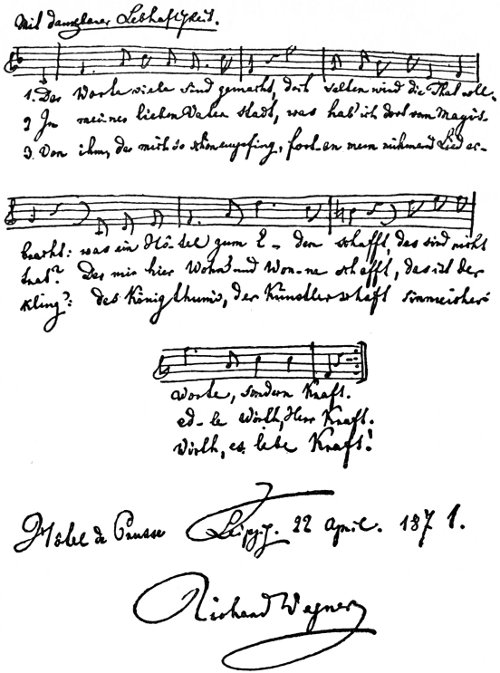 Mit dankbarer Lebhaftigkeit.
1. Der Worte viele sind gemacht, doch selten wird die That voll-
2 In meiner lieben Vater Stadt, was hab' ich dort vom Magis-
3. Von ihm, der mich so schön empfing, fort-an mein rühmend Lied er-
bracht: was ein Hô-tel zum E-den schafft, das sind nicht
trat? Der mir hier Wohn' und Won-ne schafft, das ist der
kling': des Königthums, der Künstlerschaft
Worte, sondern Kraft.
ed-le Wirth, Herr Kraft.
Wirth, es lebe Kraft!
Hôtel de Prusse Leipzig. 22 April. 1871.
Richard Wagner